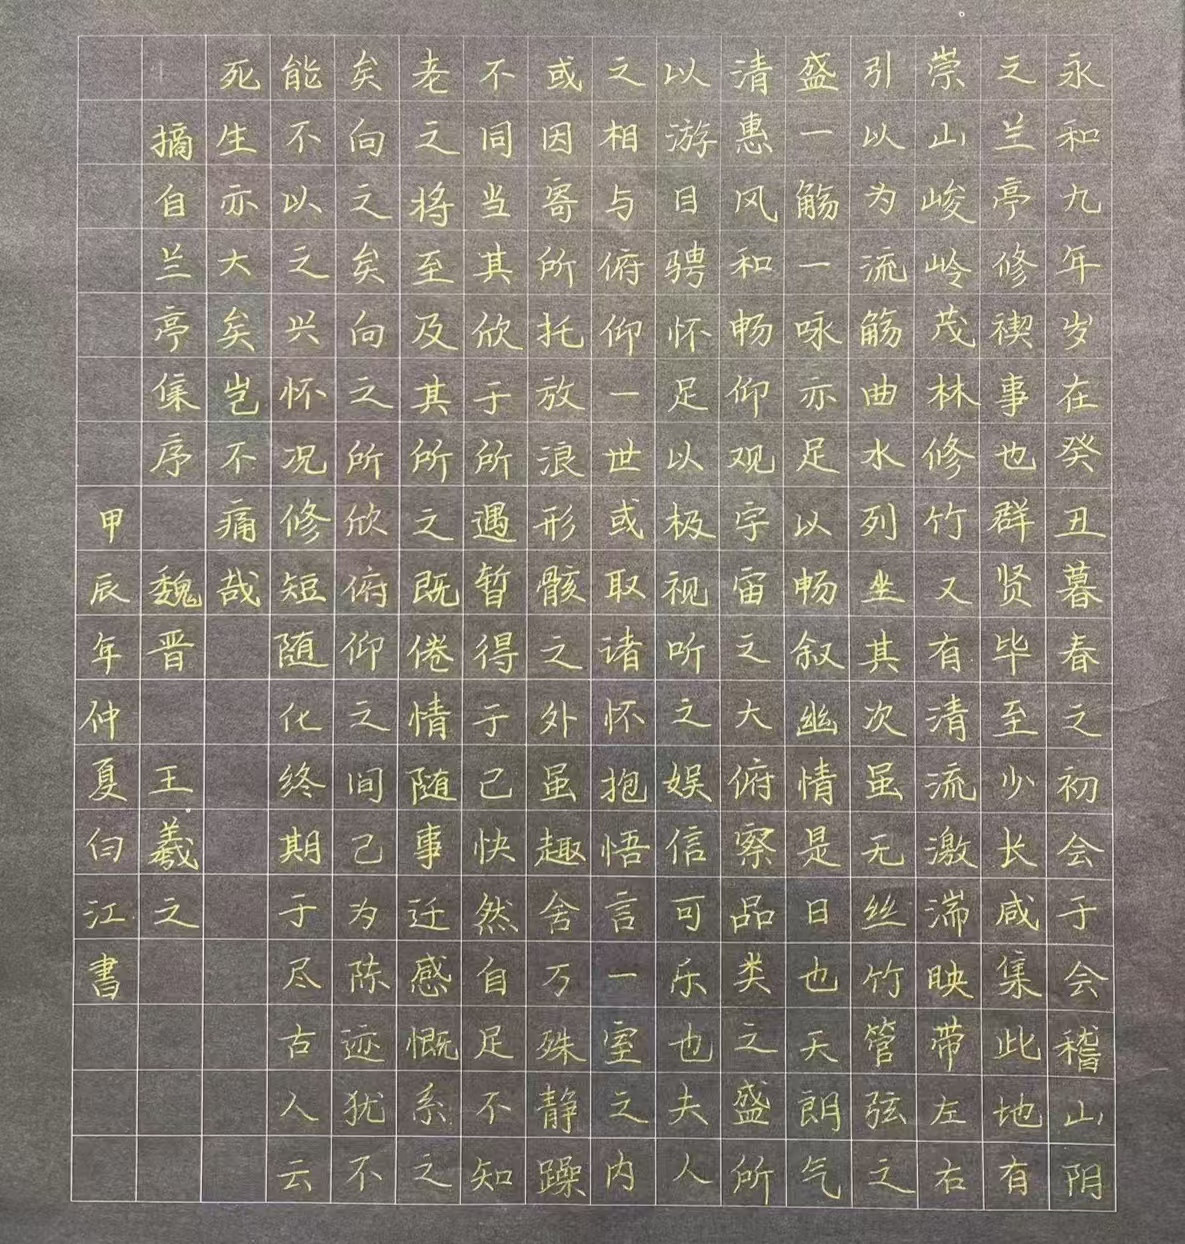 永和九年岁在癸丑暮春之初会于会稽山阴
之兰亭修禊事也群贤毕至少长咸集此地有
崇山峻岭茂林修竹又有清流激湍映带左右
引以为流觞曲水列坐其次虽无丝竹管弦之
盛一觞一咏亦足以畅叙幽情是日也天朗气
清惠风和畅仰观宇宙之大俯察品类之盛所
以游目骋怀足以极视听之娱信可乐也夫人
之相与俯仰一世或取诸怀抱悟言一室之内
或因寄所托放浪形骸之外虽趣舍万殊静躁
不同当其欣于所遇暂得于己快然自足不知
老之将至及其所之既倦情随事迁感慨系之
矣向之矣向之所欣俯仰之间已为陈迹犹不
能不以之兴怀况修短随化终期于尽古人云
死生亦大矣岂不痛哉
摘自兰亭集序 魏晋 王羲之
甲辰年仲夏白江書